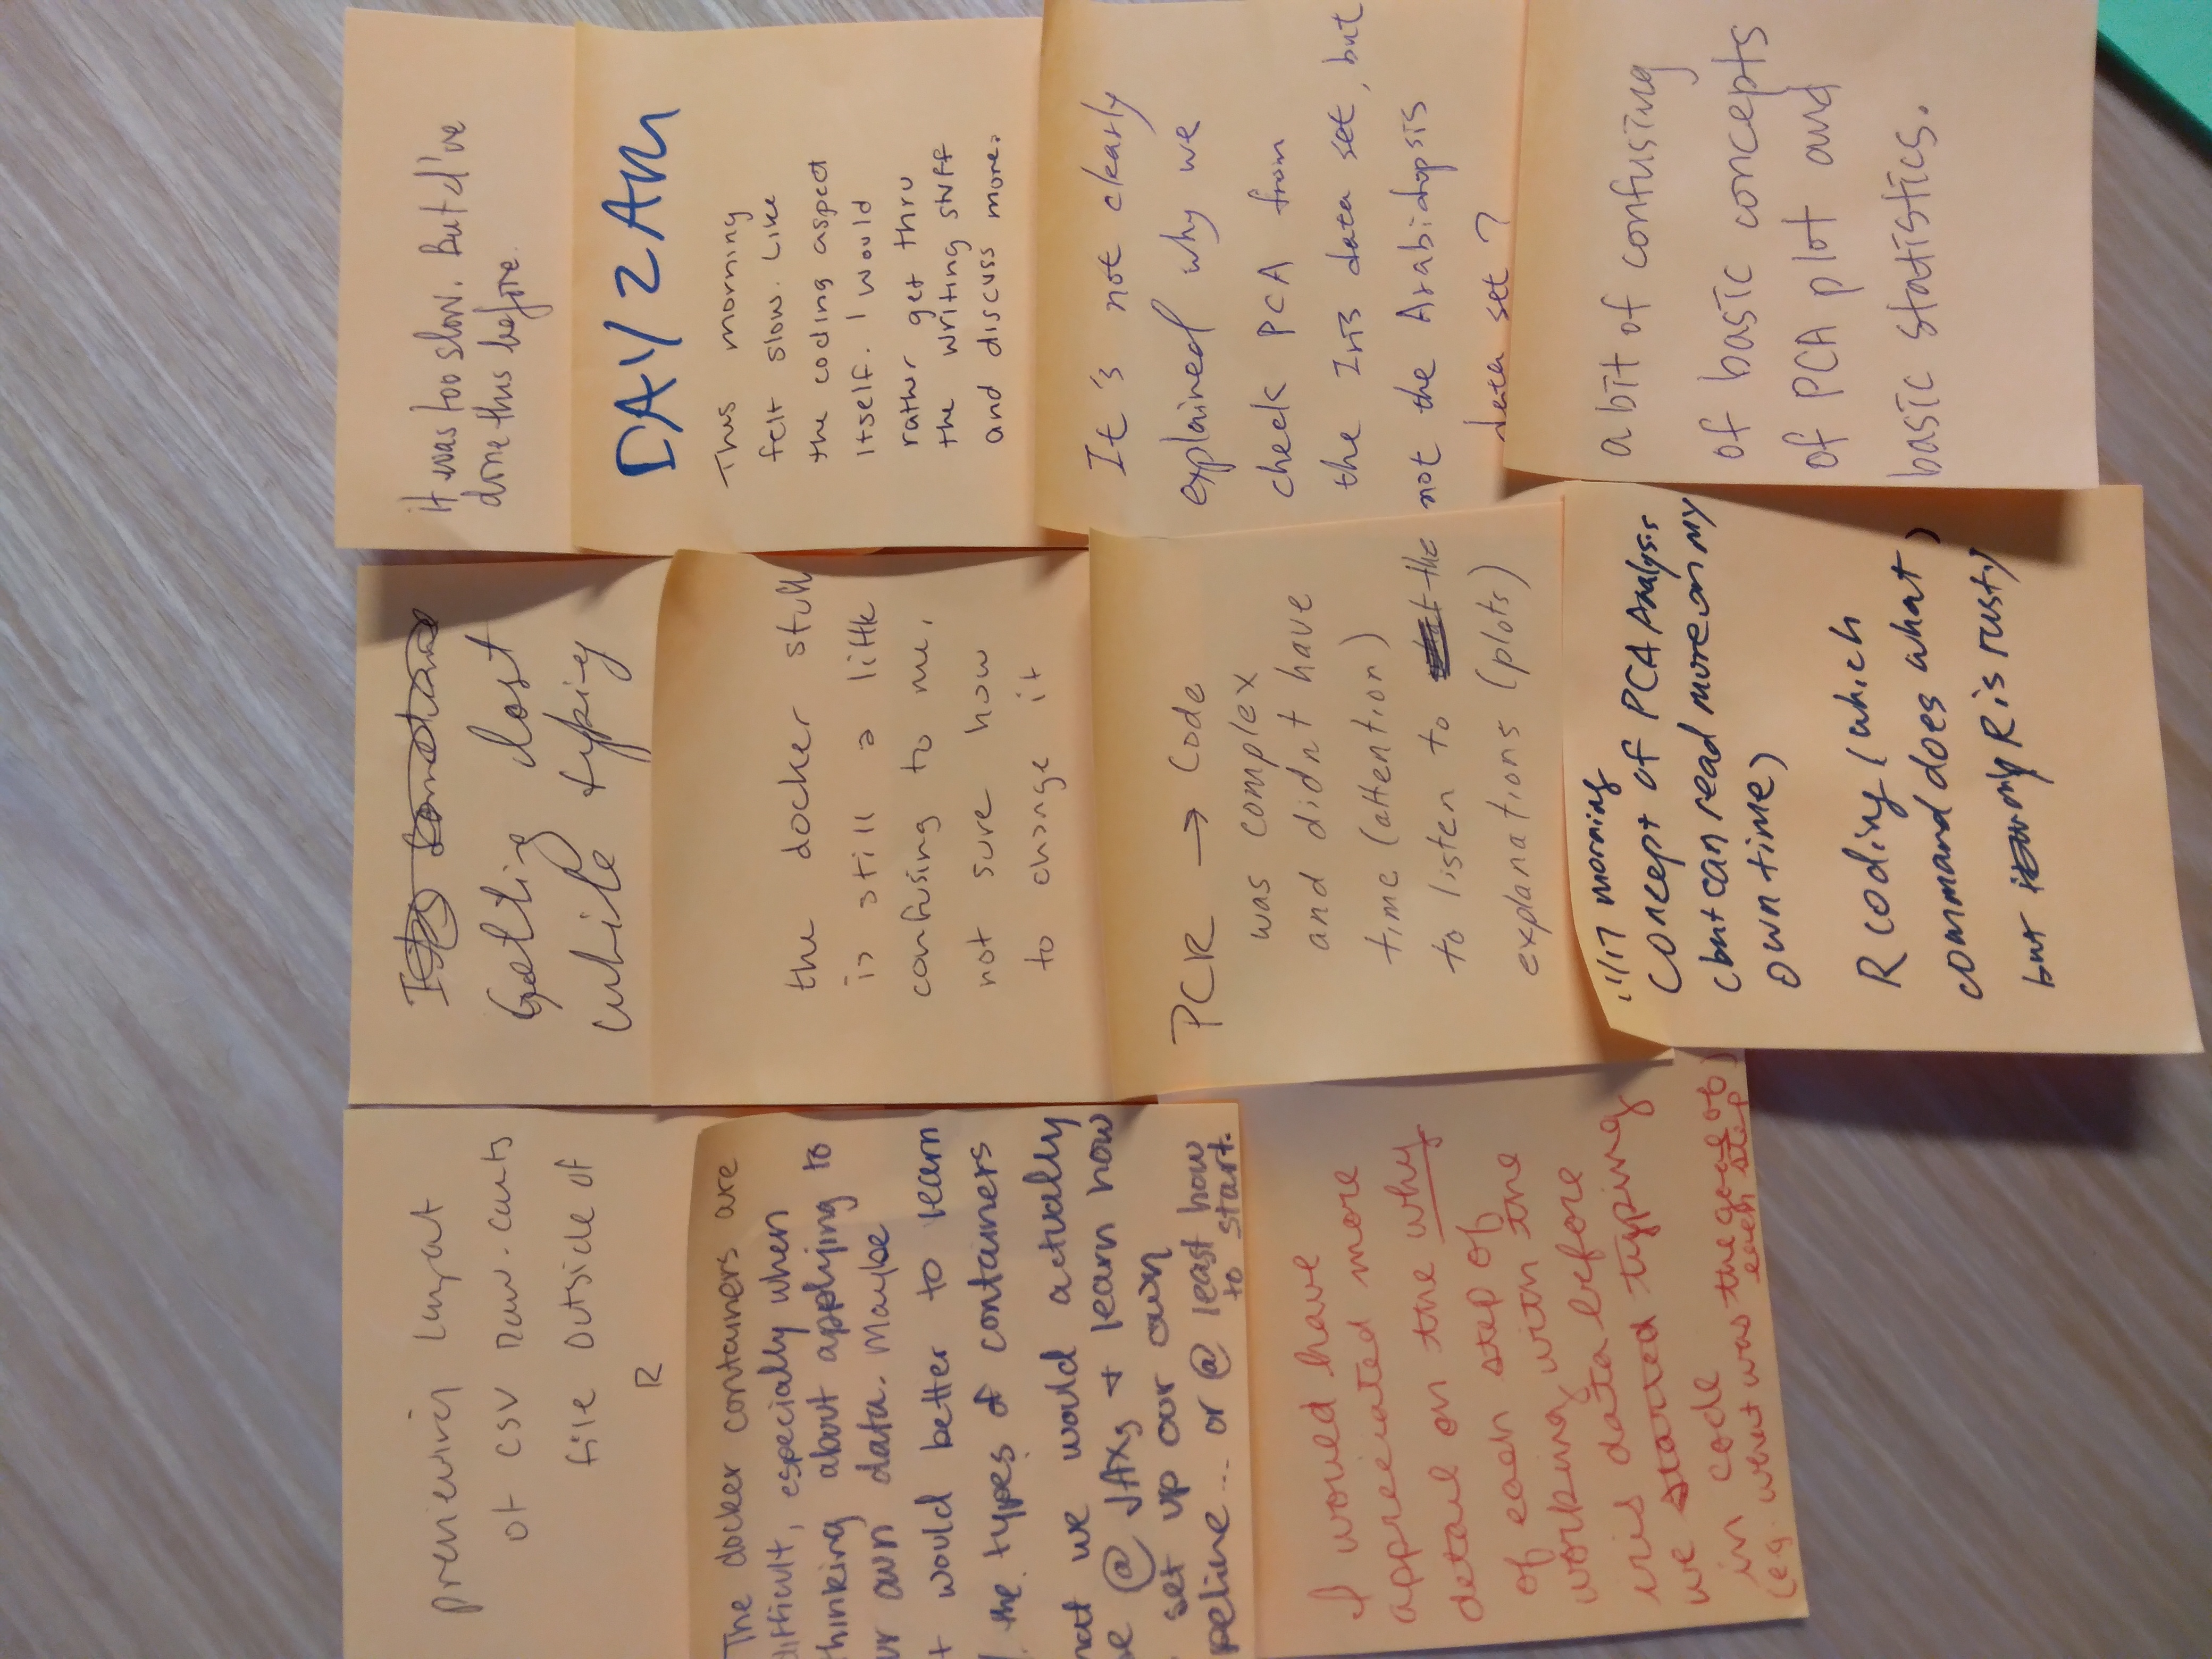 previewing layout
of csv raw.counts
file outside of
R
The docker containers are
difficult, especially when
thinking about applying to
our own data. Maybe
it would better to learn
the types of containers
that we would actually
use @ JAX, + learn how
to set up our own
pipeline... or @ least how
to start.
I would have
appreciated more
detail on the why
of each step of
working with the
iris data before
we started typing
in code
(eg. what was the goal of
each step)
Getting lost
while typing
the docker stuff
is still a little
confusing to me,
not sure how
to change it
PCR → Code
was complex
and didnt have
time (attention)
to listen to the
explanations (plots)
11/17 morning
Concept of PCA Analysis
(but can read more on my
own time)
R coding (which
command does what)
but my R is rusty
it was too slow. But I've
done this before.
DAY 2 AM
This morning
felt slow. Like
the coding aspect
itself. I would
rather get thru
the writing stuff
and discuss more.
It's not clearly
explained why we
check PCA from
the Iris data set, but
not the Arabidopsis
data set?
a bit of confusing
of basic concepts
of PCA plot and
basic statistics.